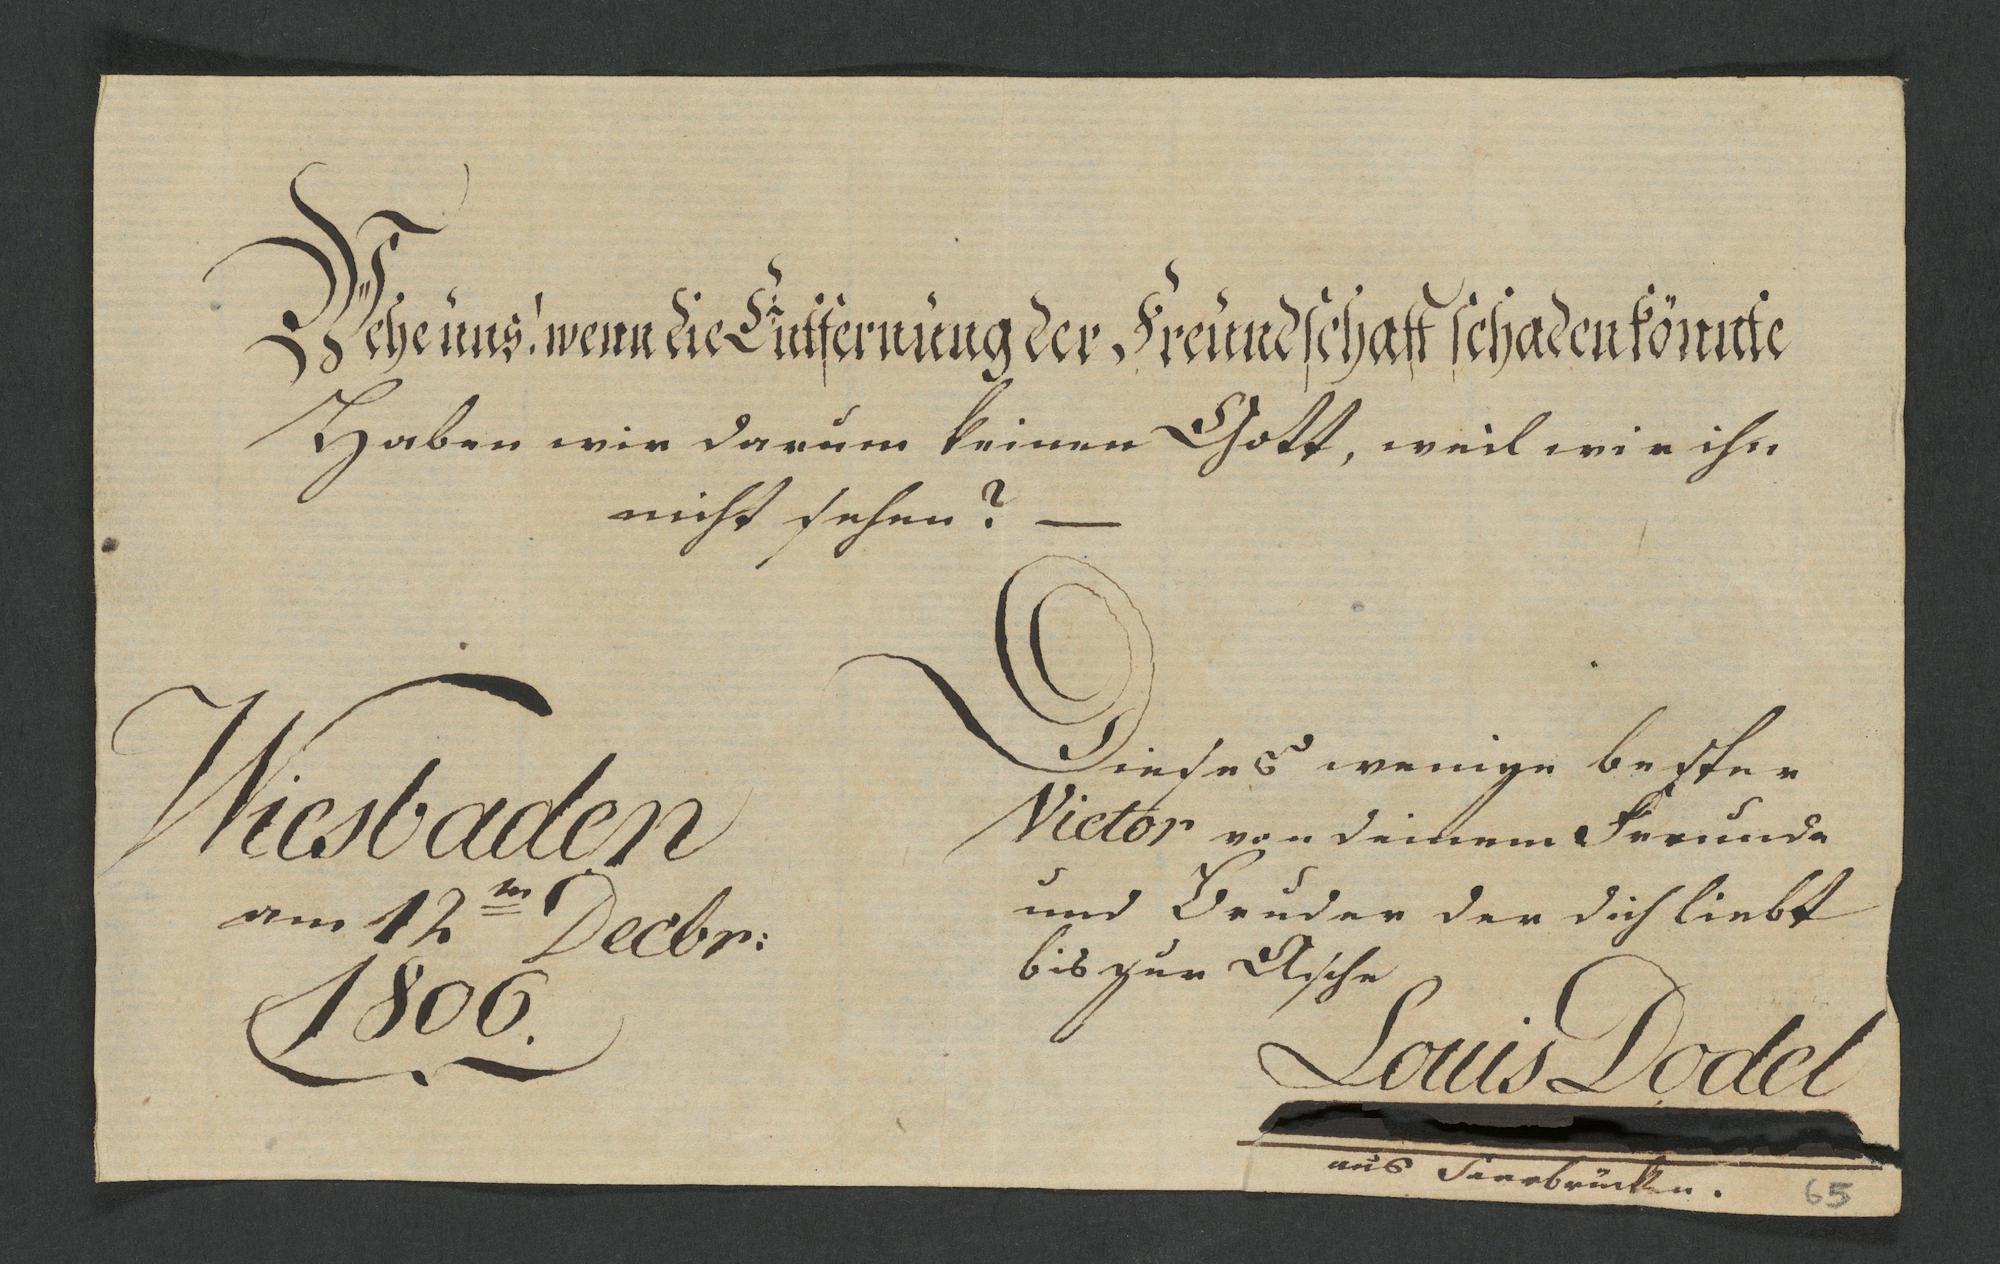 Wehe uns! wenn die Entfernung der Freundschaft schaden könnte
Haben wir darum keinen Gott, weil wir ihn
nicht sehen? —
Wiesbaden
am 12ᵗⁿ Decbr:
1806.
Dieses wenige bester
Victor von deinem Freunde
und Bruder der dich liebt
bis zur Asche
Louis Dodel
aus Saarbrücken.
65